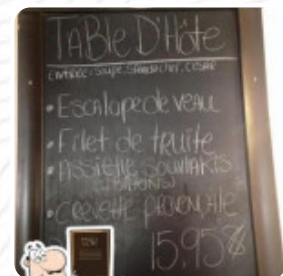 TABLE D'Hôte
ENTRÉE: SOUPE, CÉSAR
• Escalope de veau
• Filet de truite
• Assiette souvlakis
(2 BATONS)
• Crevette provençale
15,95$